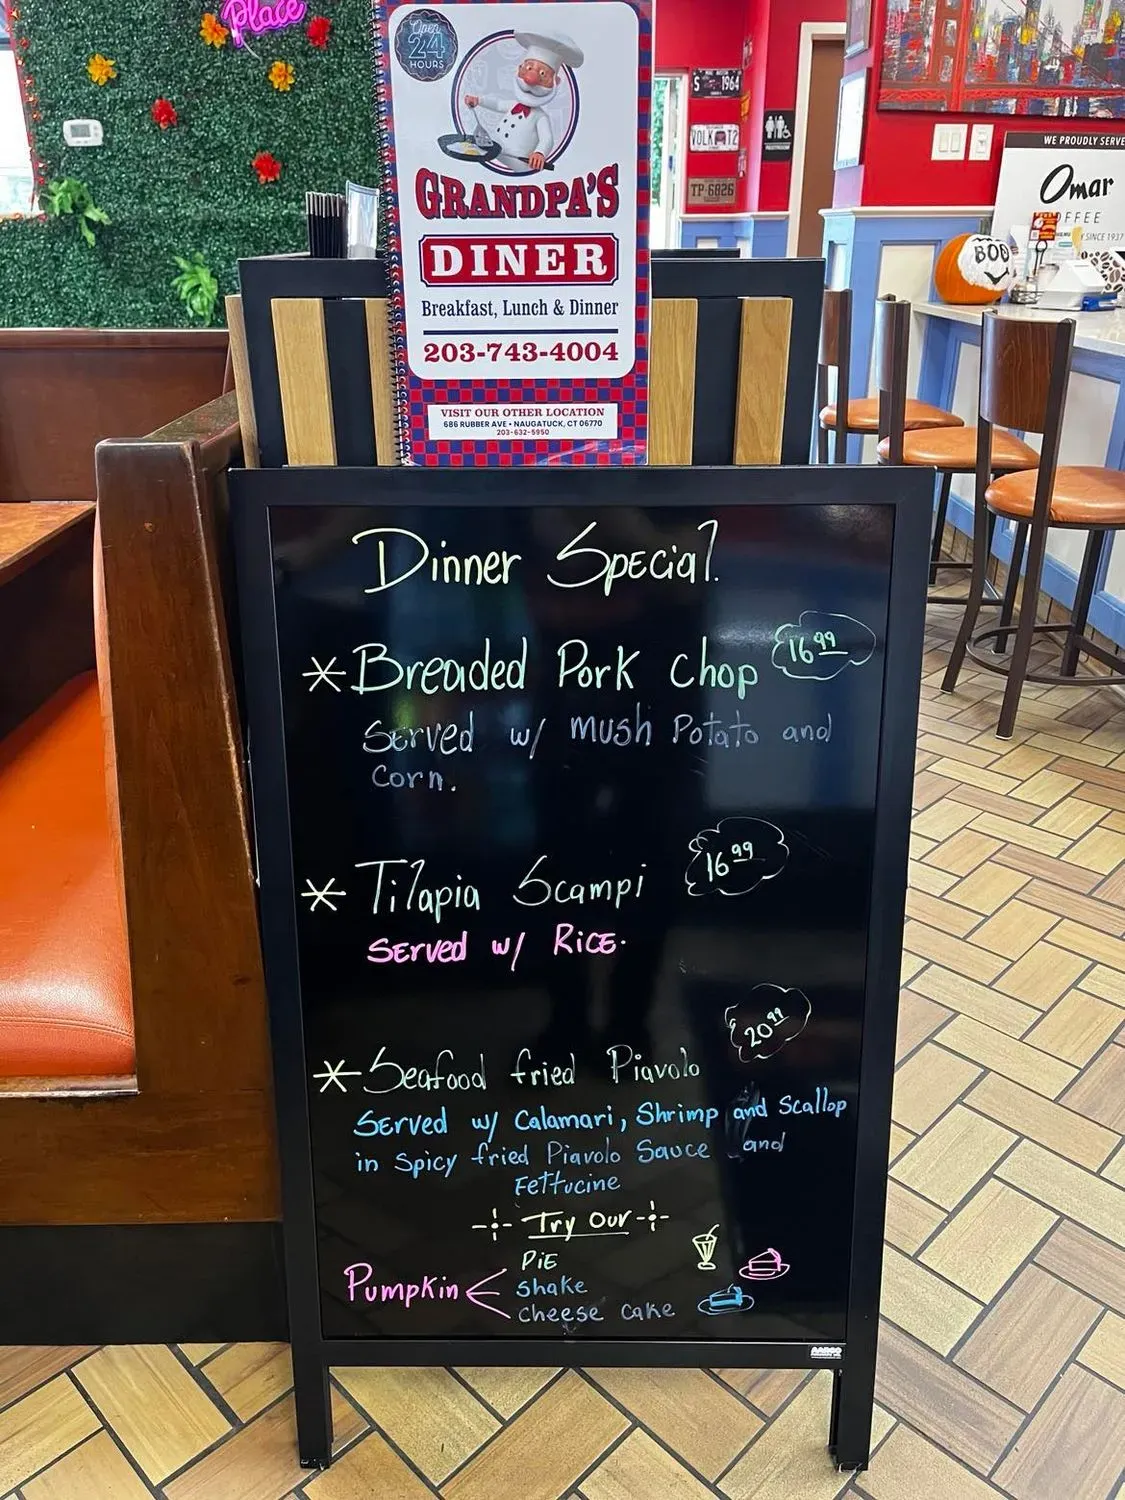 Place
Open
24
HOURS
GRANDPA'S
DINER
Breakfast, Lunch & Dinner
203-743-4004
VISIT OUR OTHER LOCATION
686 RUBBER AVE • NAUGATUCK, CT 06770
203-632-5950
S 1964
VOLK T2
TP-6826
RESTROOM
WE PROUDLY SERVE
Omar
COFFEE
SINCE 1937
BOO
Dinner Special.
*Breaded Pork Chop 16.99
Served w/ mush Potato and
Corn.
*Tilapia Scampi 16.99
Served w/ Rice.
20.99
*Seafood fried Piavolo
Served w/ Calamari, Shrimp and Scallop
in Spicy fried Piavolo Sauce and
Fettucine
Try Our
Pumpkin
Pie
Shake
Cheese Cake